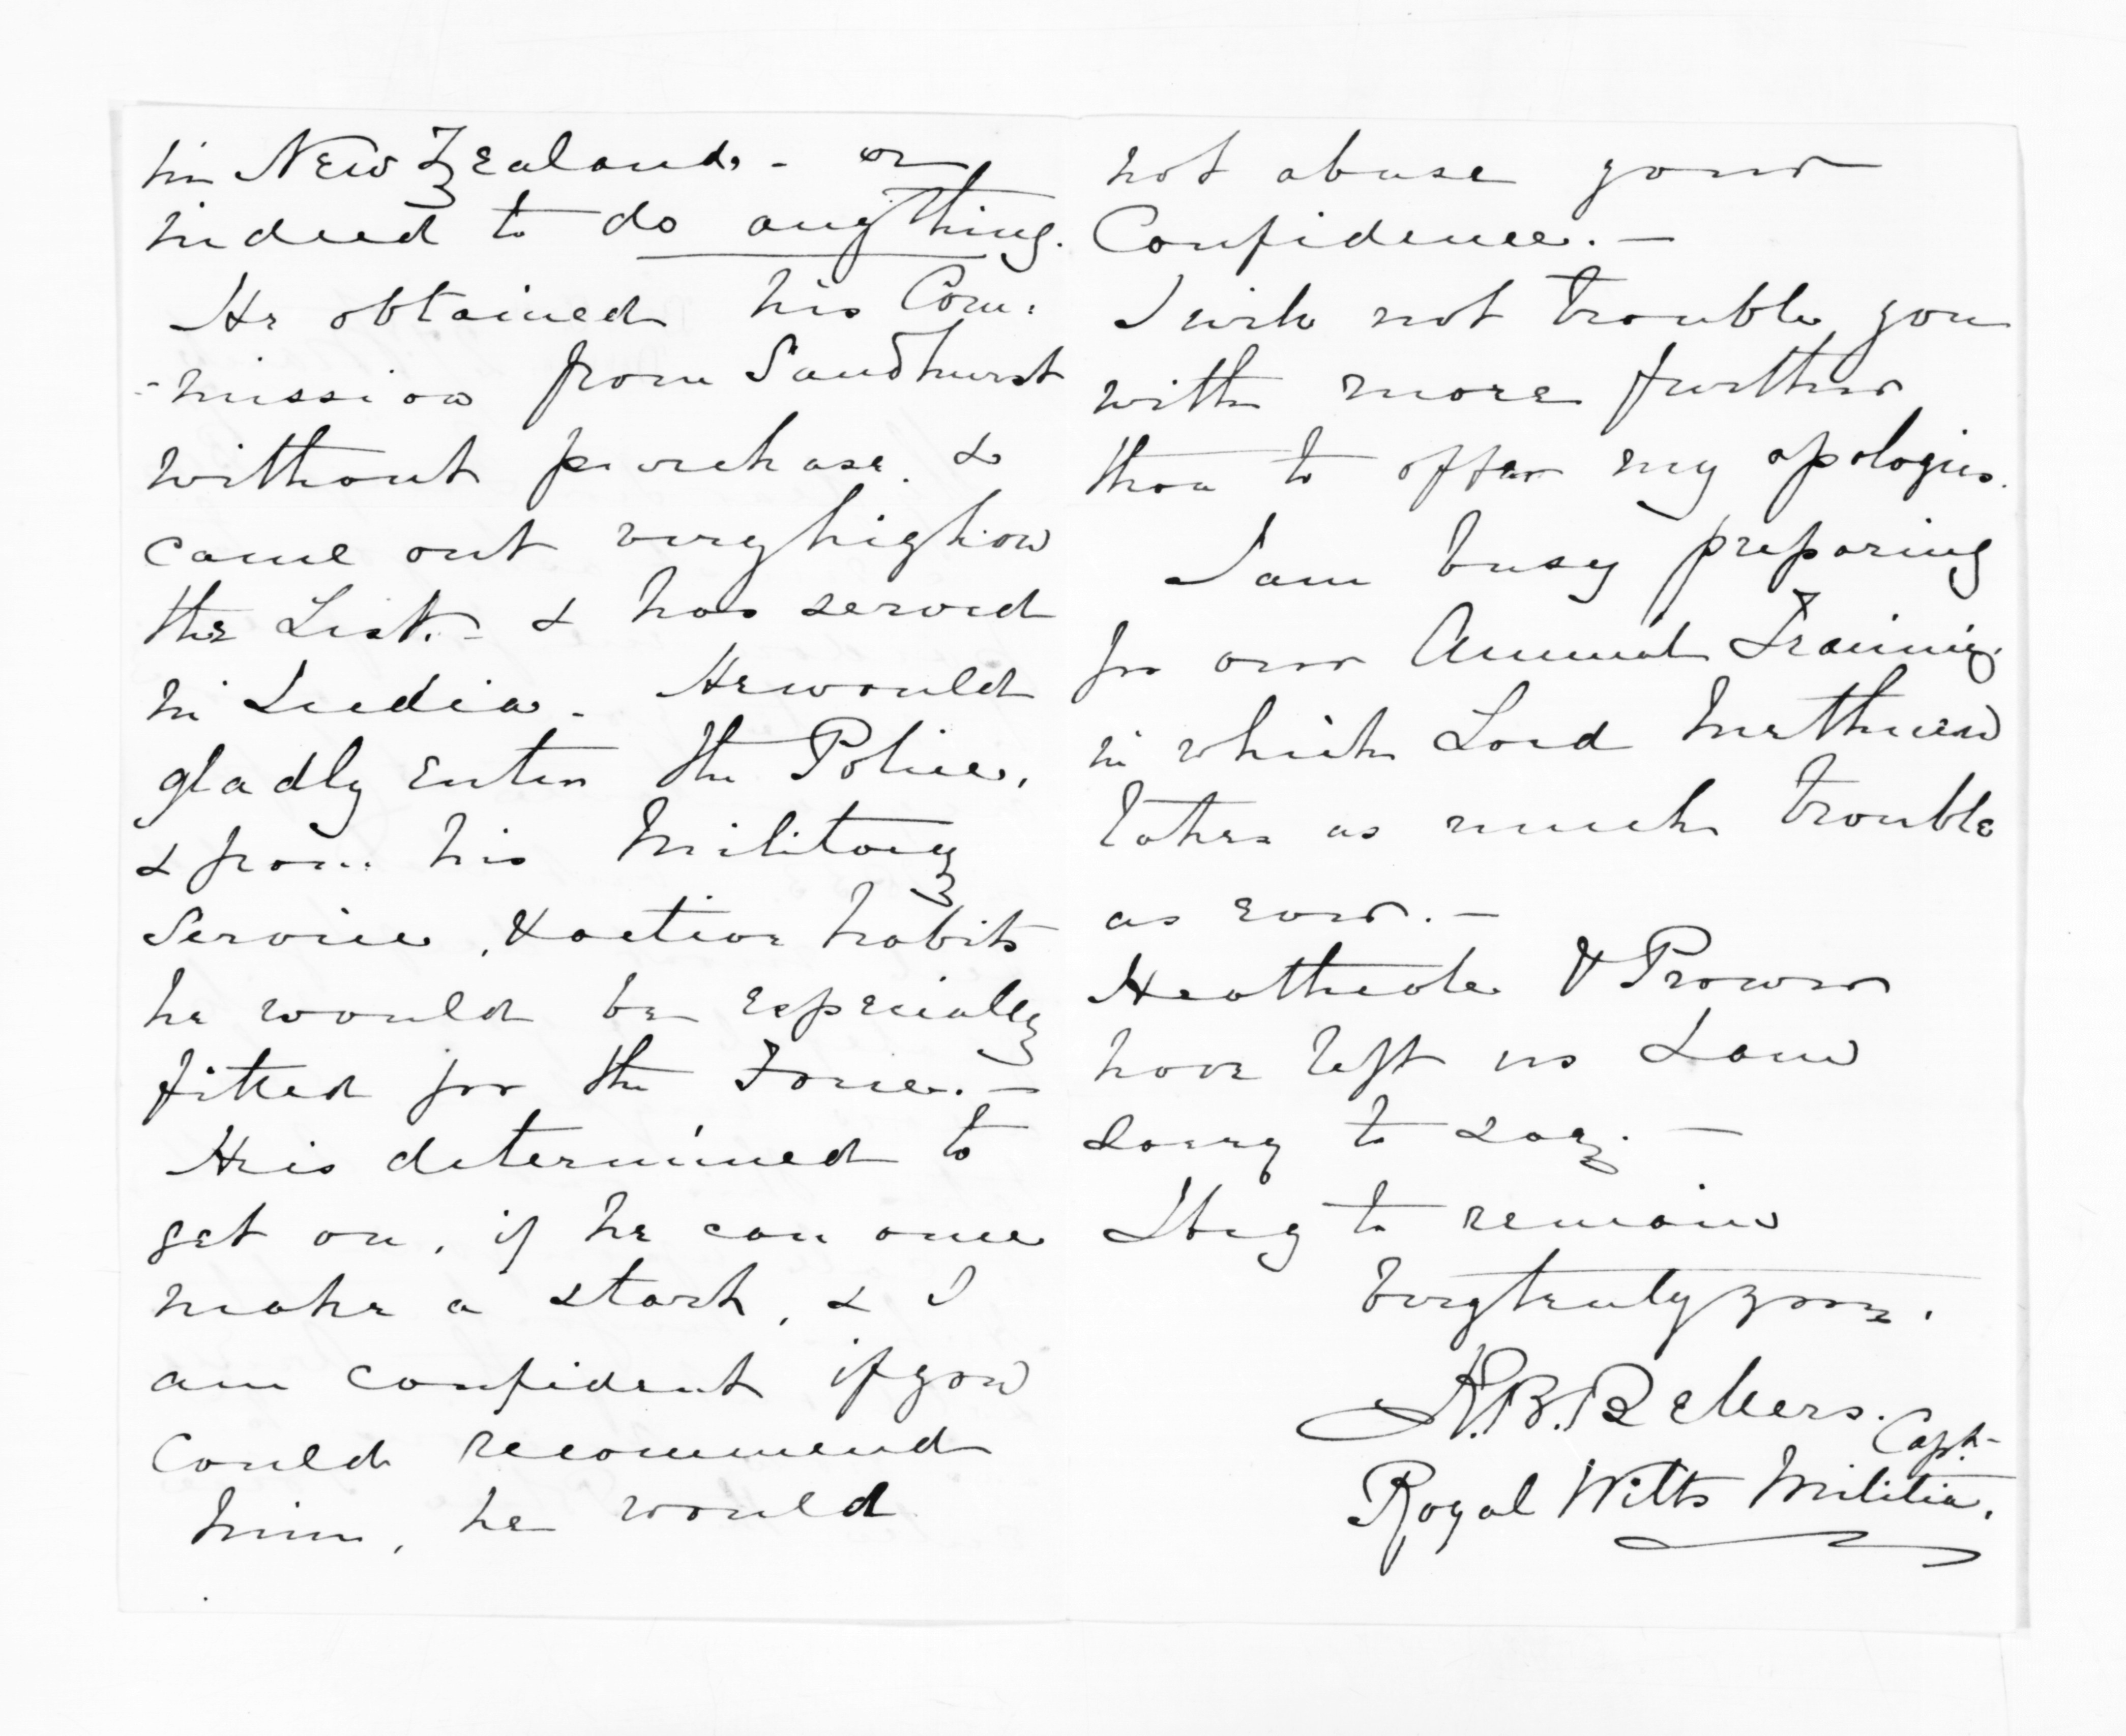 in New Zealand. - or
indeed to do anything.
He obtained his Com:
-mission from Sandhurst
without purchase. &
came out very high on
the List. - & has served
in India. - He would
gladly enter the Police,
& from his Military
Service, & active habits
he would be especially
fitted for the Force. -
He is determined to
get on, if he can once
make a start, & I
am confident if you
could recommend
him, he would
not abuse your
Confidence. -
I will not trouble you
with more further
than to offer my apologies.
I am busy preparing
for our Annual Training.
in which Lord Methuen
takes as much trouble
as ever. -
Heathcote & Prower
have left us I am
sorry to say. -
I beg to remain
Very truly yours.
Capt.
Royal Wilts Militia.